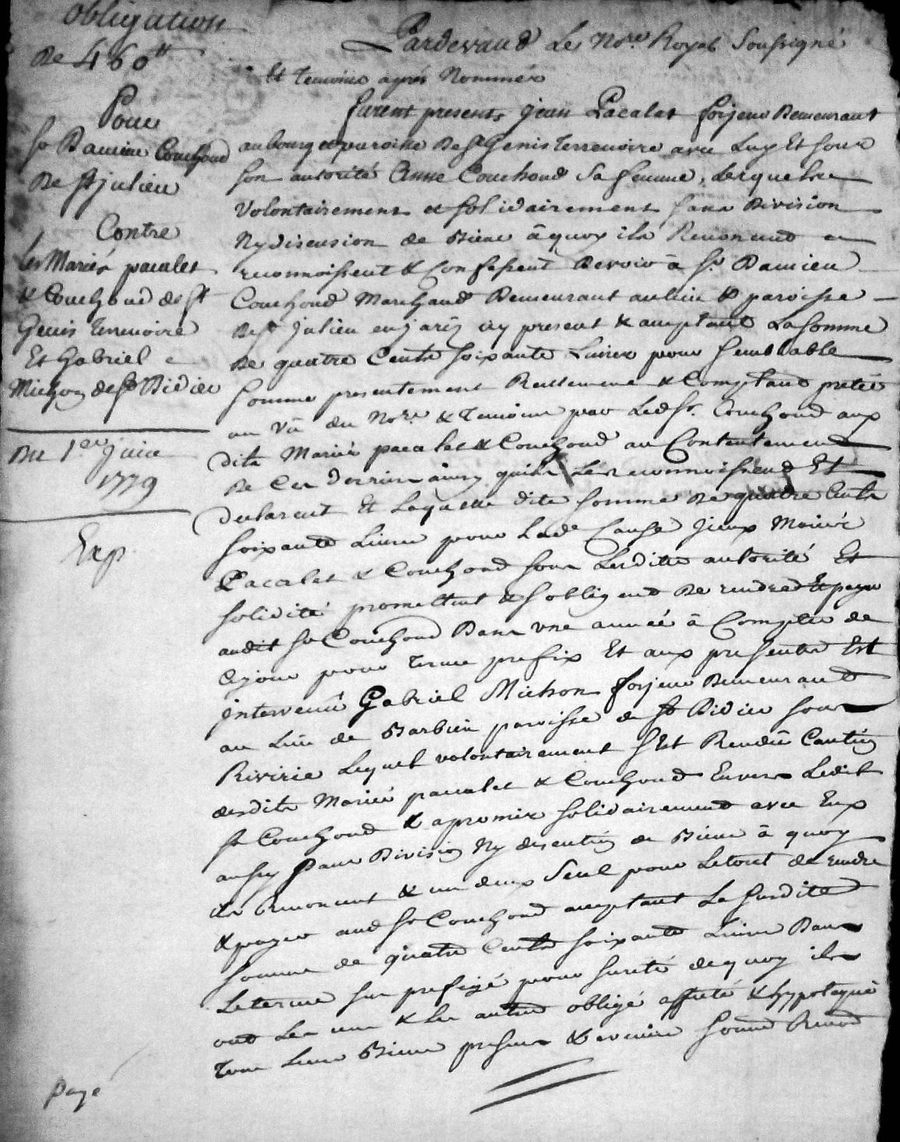 obligation
de 460ᵗᵗ
Pour
Sr Damien Couchoud
De St julien
Contre
les Mariés pacalet
& Couchoud de St
Genis terrenoire
Et Gabriel
Michon de St Didier
Du 1er juin
1779
Exp
Pardevand Le Nore Royal Soussigné
Et temoins aprés Nommés
furent presents jean Pacalet forjeur Demeurant
au bourg et paroisse De St Genis Terrenoire avec Luy Et sous
son autorité Anne Couchoud Sa femme, Lesquels
Volontairement et solidairement sans Division
Ny discusion de Biens à quoy ils Renoncent
reconnoissent & Confessent Devoir à Sr Damien
Couchoud Marchand Demeurant au lieu & paroisse
De St julien en jarés icy present & acceptant La somme
De quatre Cents soixante Livres pour semblable
somme presentement Reellement & Comptant pretée
au Vû du Nore & Temoins par Ledt Sr Couchoud aux
dits Mariés pacalet & Couchoud au Contentement
De Ces derniers ainsy qu'ils Le reconnoissent Et
declarent Et Laquelle dite somme De quatre Cents
soixante Livres pour Lade Cause jceux Mariés
Pacalet & Couchoud sous Lesdites autorité Et
solidité promettent & sobligent De rendre Et payer
audit Sr Couchoud Dans une année à Compter de
Cejour pour terme prefix Et aux presentes Est
jntervenû Gabriel Michon forjeur Demeurant
au Lieu de Barbieu paroisse de St Didier sous
Riverie Lequel volontairement sEst Rendû Caution
desdits Mariés pacalet & Couchoud Envers Ledit
Sr Couchoud & a promis solidairement avec Eux
aussy sans Division Ny discution de Biens à quoy
ils renoncent & un deux Seul pour Letout de rendre
& payer aud Sr Couchoud acceptant La susdite
somme de quatre Cents soixante Livres Dans
Leterme sus prefigé pour sureté de quoy ils
ont Les uns & les autres obligé affecté & hypotequé
Tous Leurs Biens presents & avenirs
payé